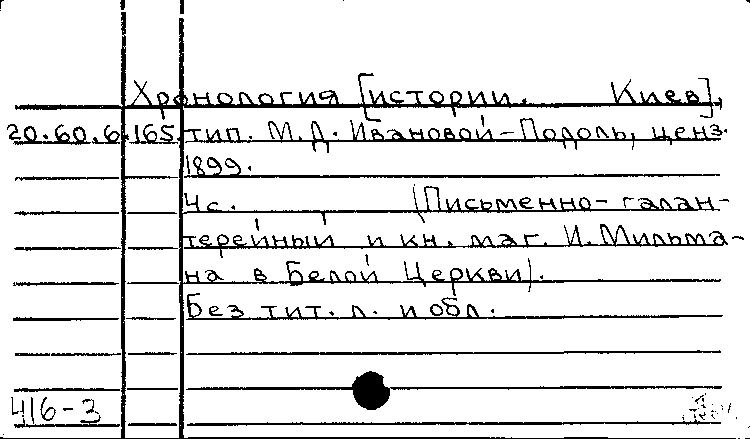 Хронология [истории. Киев],
20.60.6.165. тип. М.Д. Ивановой-Подоль, ценз.
1899.
4с. (Письменно-галан-
терейный и кн. маг. И. Мильма-
на в Белой Церкви).
Без тит. л. и обл.
416-3